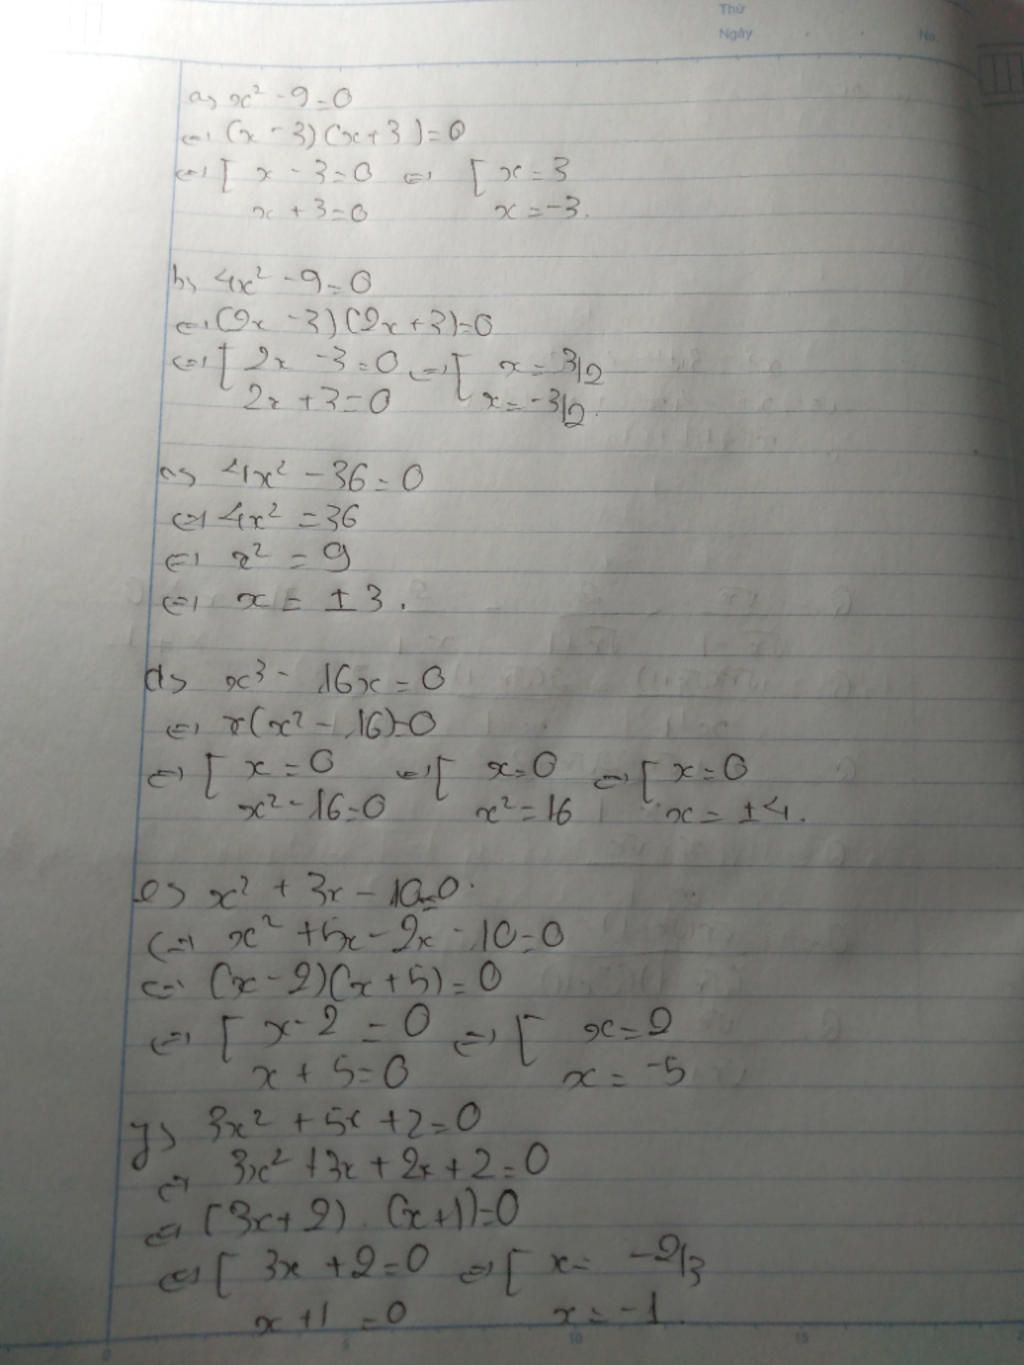 Thứ
Ngày No.
a, x² - 9 = 0
⇔ (x - 3)(x + 3) = 0
⇔ [ x - 3 = 0 ⇔ [ x = 3
x + 3 = 0 x = -3.
b, 4x² - 9 = 0
⇔ (2x - 3)(2x + 3) = 0
⇔ [ 2x - 3 = 0 ⇔ [ x = 3/2
2x + 3 = 0 x = -3/2.
c, 4x² - 36 = 0
⇔ 4x² = 36
⇔ x² = 9
⇔ x = ±3.
d, x³ - 16x = 0
⇔ x(x² - 16) = 0
⇔ [ x = 0 ⇔ [ x = 0 ⇔ [ x = 0
x² - 16 = 0 x² = 16 x = ±4.
e, x² + 3x - 10 = 0.
⇔ x² + 5x - 2x - 10 = 0
⇔ (x - 2)(x + 5) = 0
⇔ [ x - 2 = 0 ⇔ [ x = 2
x + 5 = 0 x = -5
y, 3x² + 5x + 2 = 0
⇔ 3x² + 3x + 2x + 2 = 0
⇔ (3x + 2).(x + 1) = 0
⇔ [ 3x + 2 = 0 ⇔ [ x = -2/3
x + 1 = 0 x = -1.
0 5 10 15